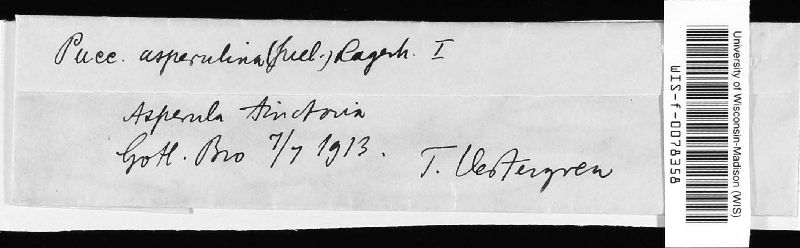 Pucc. asperulina (Juel.) Lagerh. I
Asperula tinctoria
Gotl. Bro 7/7 1913.
T. Vestergren
University of Wisconsin-Madison (WIS)
WIS-f-0078358